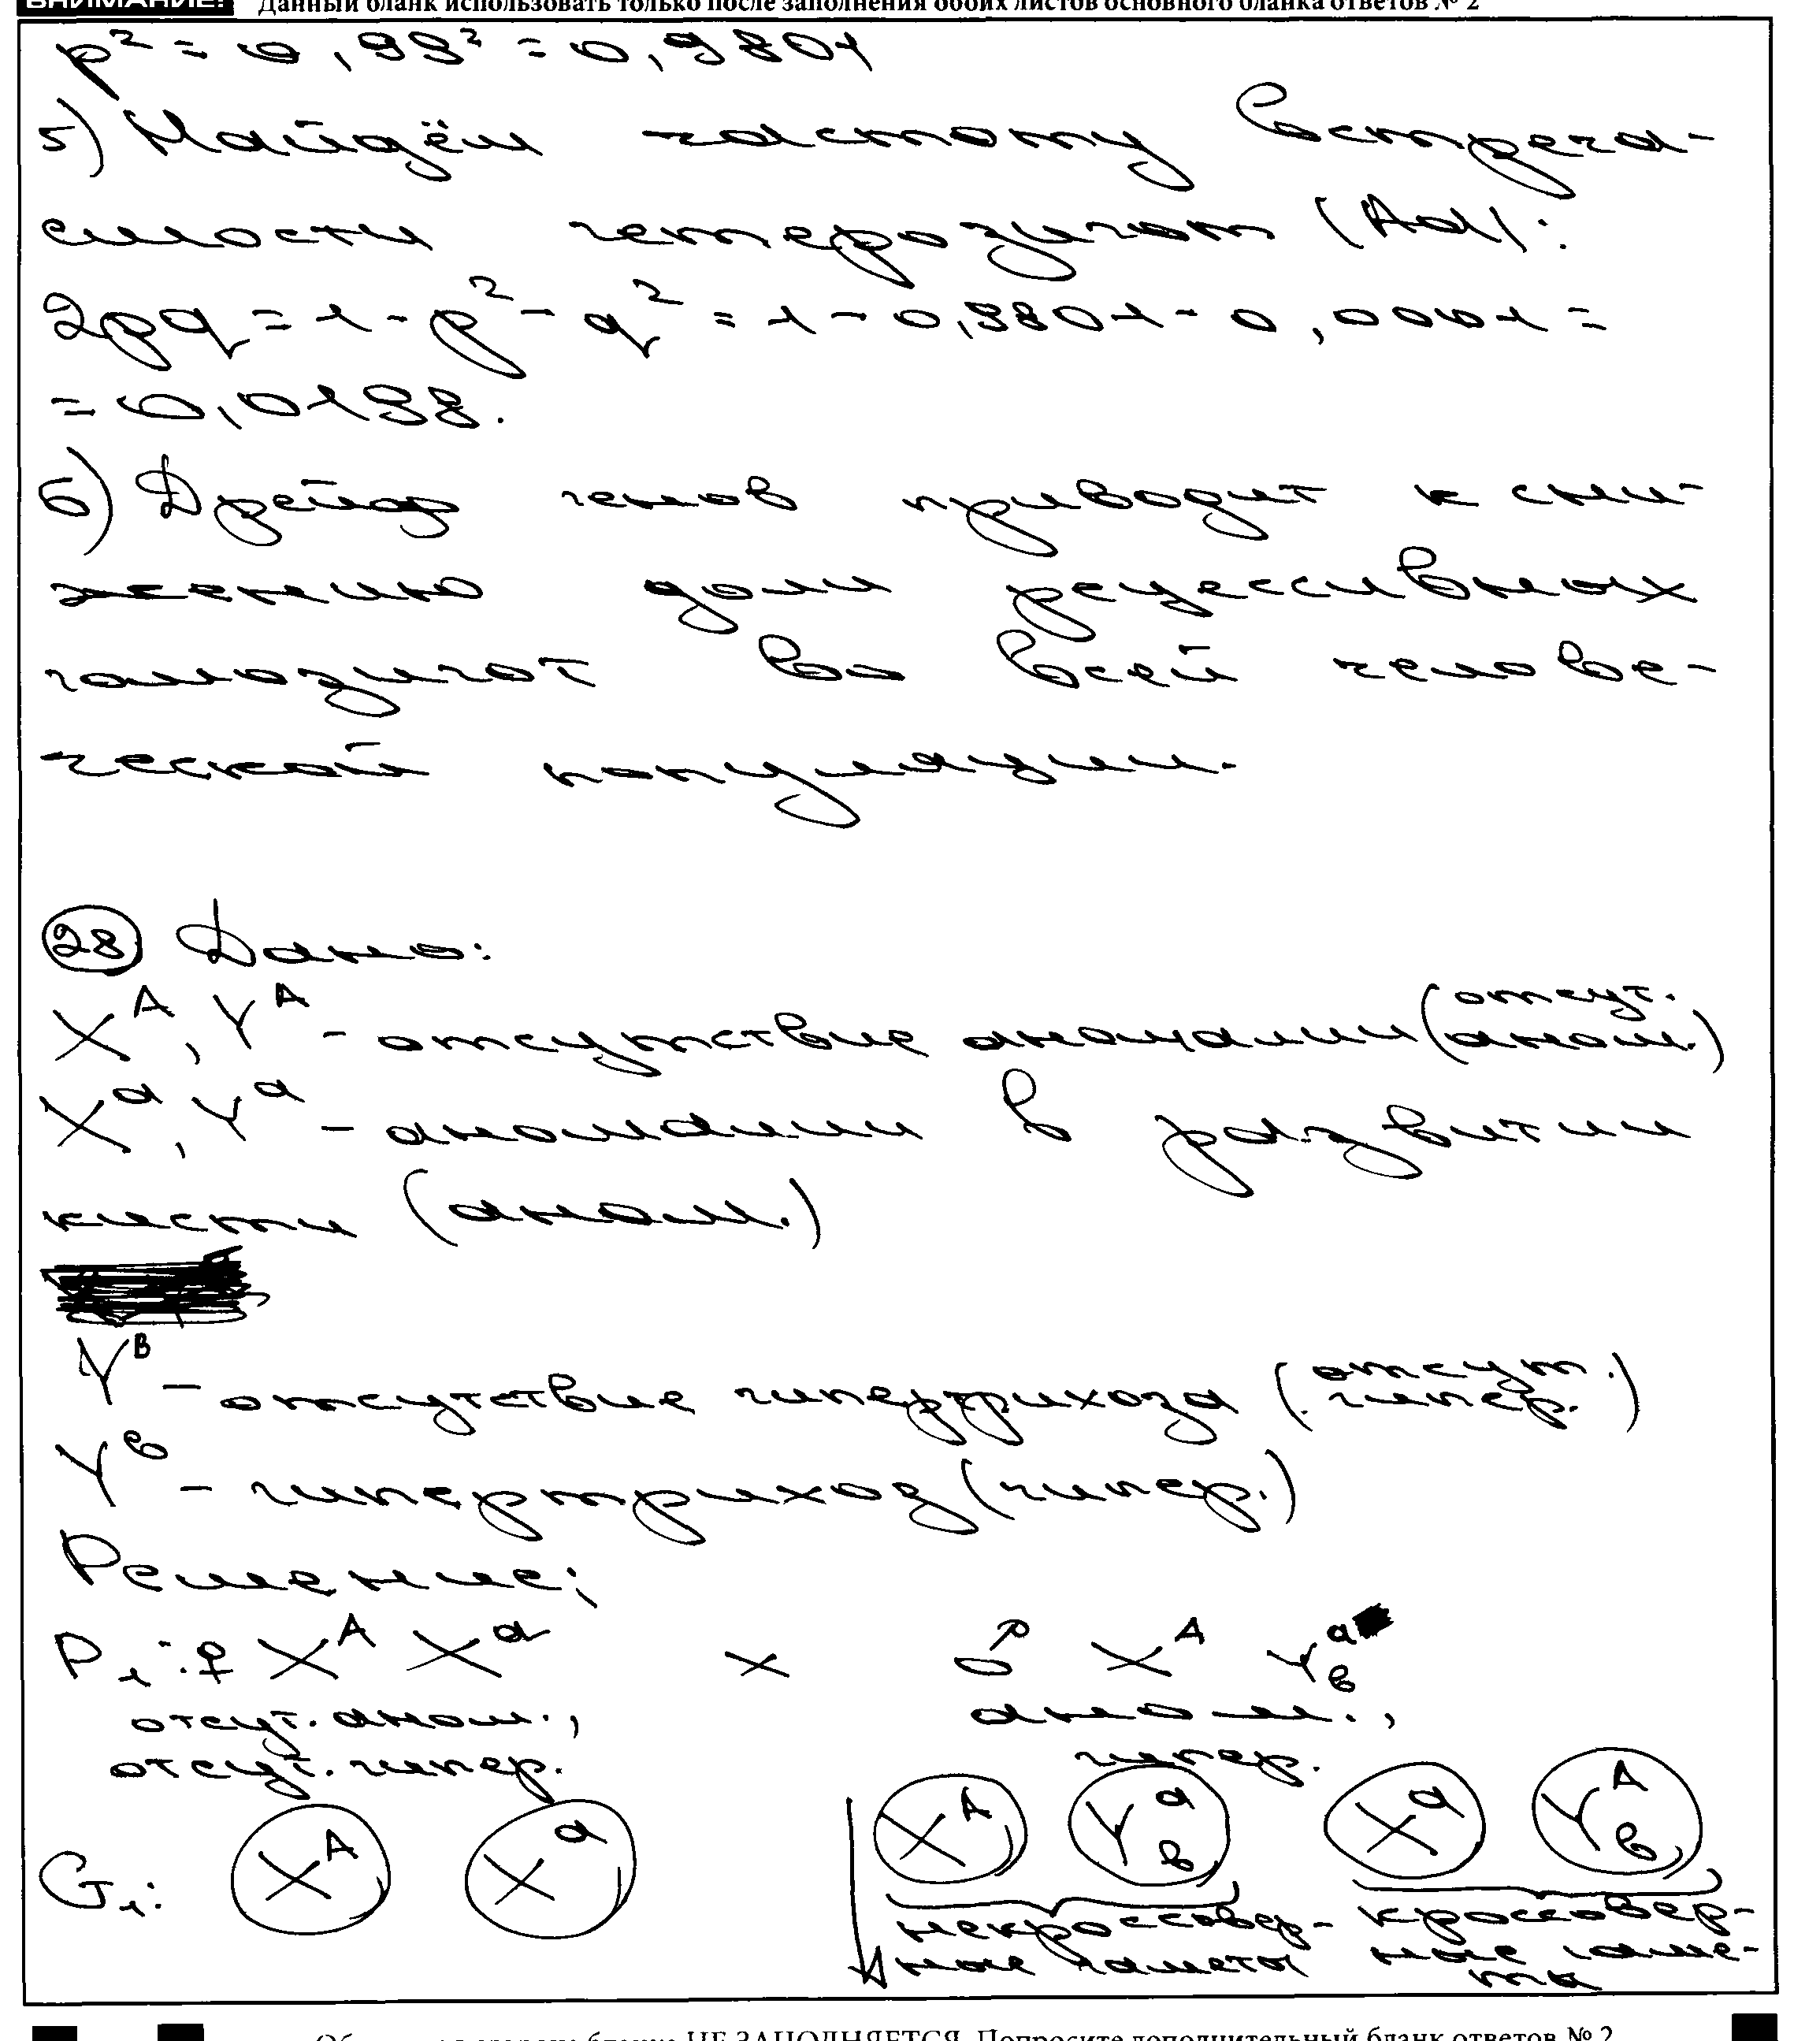 ВНИМАНИЕ! Данный бланк использовать только после заполнения обоих листов основного бланка ответов № 2
p² = 0,99² = 0,9801
5) Найдём частоту встреча-
емости гетерозигот (Aa):
2pq = 1 - p² - q² = 1 - 0,9801 - 0,0001 =
= 0,0198.
6) Дрейф генов приводит к сни-
жению доли рецессивных
гомозигот во всей челове-
ческой популяции.
28 Дано:
Xᴬ, Yᴬ - отсутствие аномалии (отсут. аном.)
Xᵃ, Yᵃ - аномалии в развитии
кисти (аном.)
Yᴮ - отсутствие гипертрихоза (отсут. гипер.)
Yᵇ - гипертрихоз (гипер.)
Решение:
P₁: ♀ Xᴬ Xᵃ × ♂ Xᴬ Yᵃb
отсут. аном., аном.,
отсут. гипер. гипер.
G₁: Xᴬ Xᵃ Xᴬ Yᵃb Xᵃ Yᴬb
некроссовер- кроссовер-
ные гаметы ные гаме-
ты
НЕ ЗАПОЛНЯЕТСЯ. Попросите дополнительный бланк ответов № 2